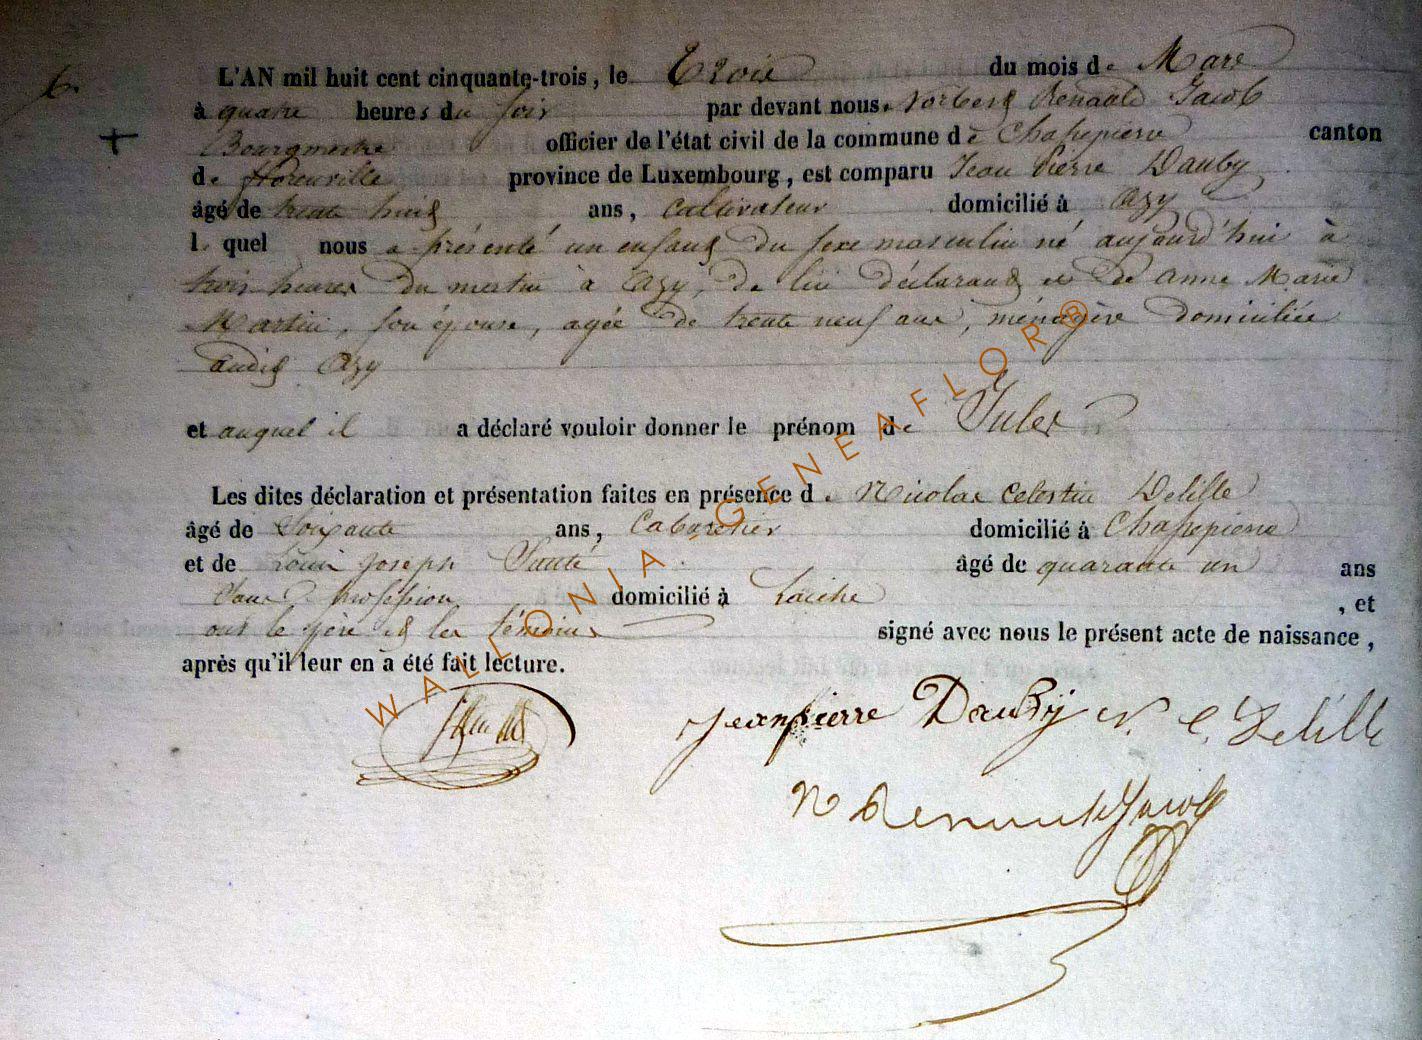 6.
L'AN mil huit cent cinquante-trois, le Trois du mois de Mars
à quatre heures du soir par devant nous Norbert Renauld Jacob
Bourgmestre officier de l'état civil de la commune de Chassepierre canton
de florenville province de Luxembourg, est comparu Jean Pierre Dauby
âgé de trente huit ans, Cultivateur domicilié à Azy
lequel nous a présenté un enfant du sexe masculin né aujourd'hui à
trois heures du matin à Azy, de lui déclarant et de Anne Marie
Martin, son épouse, agée de trente neuf ans, ménagère domiciliée
audit Azy
et auquel il a déclaré vouloir donner le prénom de Jules
Les dites déclaration et présentation faites en présence de Nicolas Celestin Delille
âgé de Soixante ans, Cabaretier domicilié à Chassepierre
et de Louis Joseph âgé de quarante un ans
Sans profession domicilié à Laiche, et
ont le père et les témoins signé avec nous le présent acte de naissance,
après qu'il leur en a été fait lecture.
Jeanpierre Dauby N. C. Delille
N Renauld Jacob
WALLONIA - GENEAFLOR®